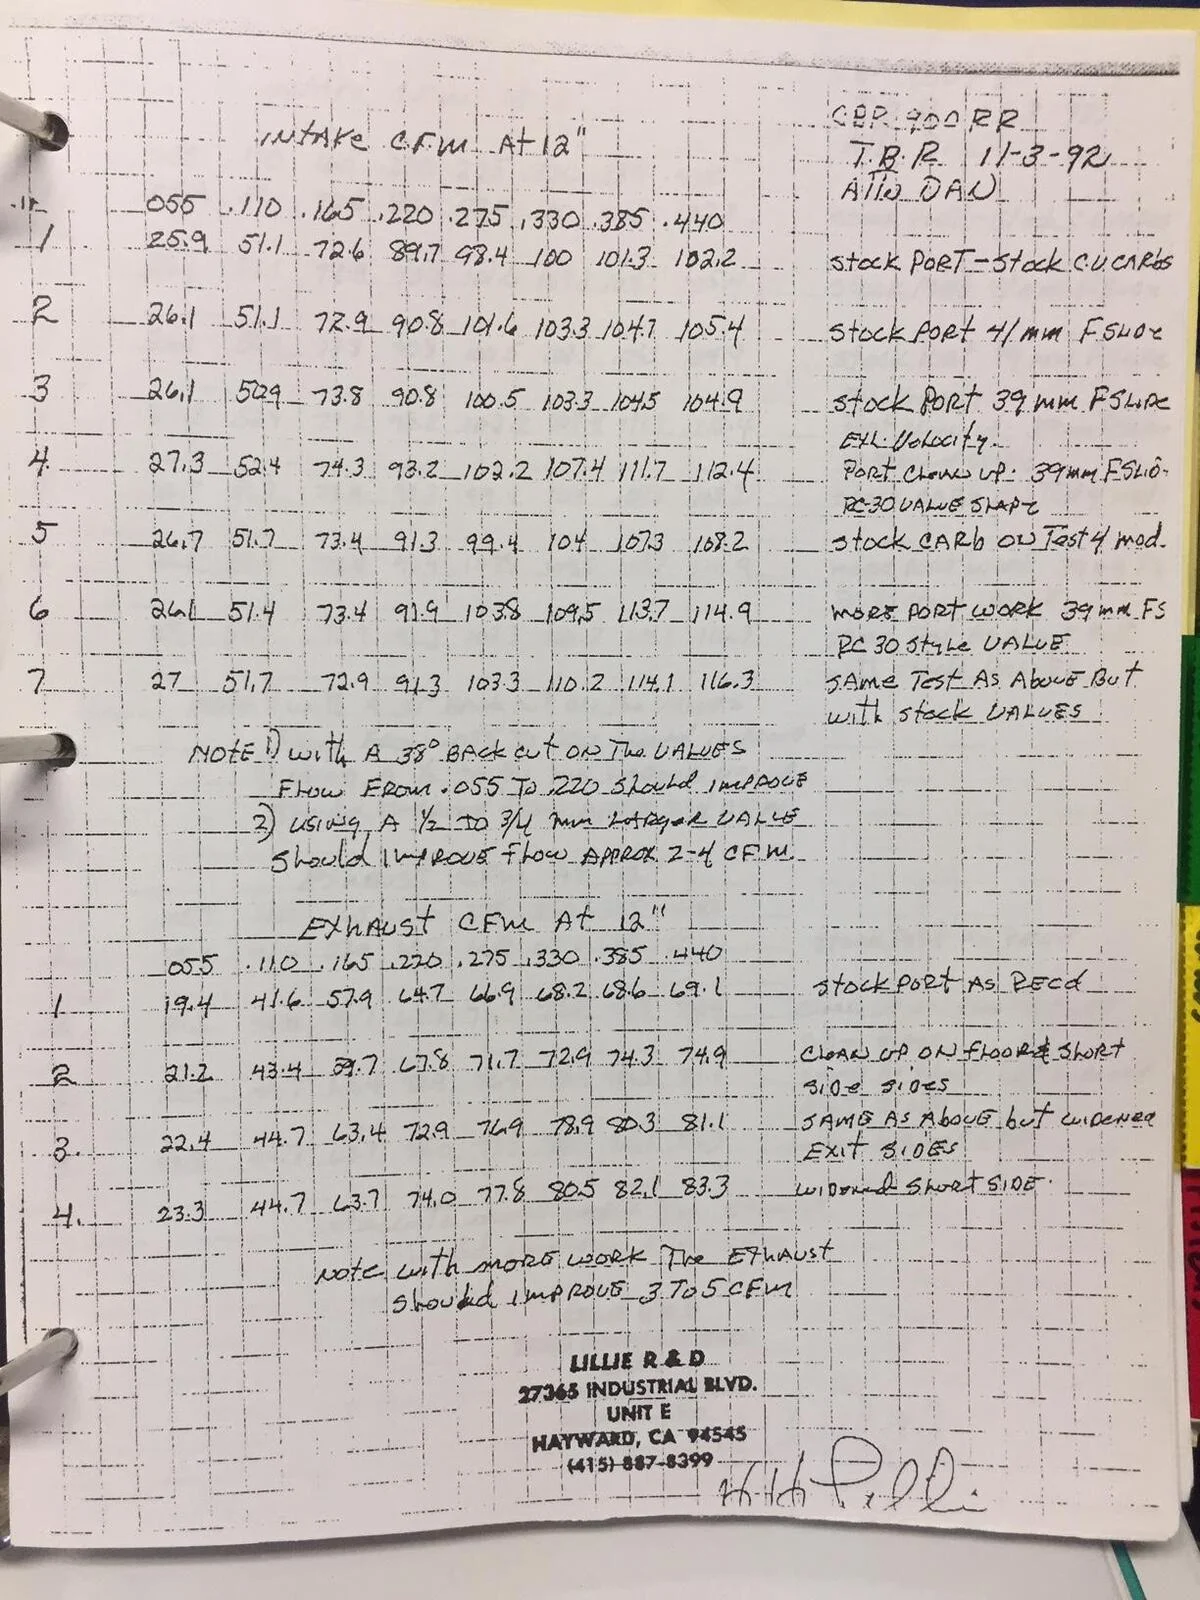 CBR 900RR
INTAKE CFM At 12"
T.B.R 11-3-92
Attn DAN
055 .110 .165 .220 .275 .330 .385 .440
1 25.9 51.1 72.6 89.7 98.4 100 101.3 102.2 Stock PORT - Stock C.V. CARbs
2 26.1 51.1 72.9 90.8 101.6 103.3 104.7 105.4 Stock PORT 41 mm F SLIDe
3 26.1 50.9 73.8 90.8 100.5 103.3 104.5 104.9 Stock PORT 39 mm F SLIDe
Velocity.
4. 27.3 52.4 74.3 93.2 102.2 107.4 111.7 112.4 PORT Clean up. 39mm F SLID-
RC-30 VALVE SHAPE
5 26.7 51.7 73.4 91.3 99.4 104 107.3 108.2 Stock CARb ON Test 4 mod.
6 26.1 51.4 73.4 91.9 103.8 109.5 113.7 114.9 MORE PORT WORK 39mm FS
RC 30 Style VALVE
7 27 51.7 72.9 91.3 103.3 110.2 114.1 116.3 SAme Test As Above But
with stock VALVES
NOTE 1) with A 38° BACK Cut ON The VALVES
Flow From .055 To .220 Should Improve
2) USING A 1/2 TO 3/4 mm LARger VALVE
Should IMPROVE flow APPROX 2-4 CFM.
EXHAUST CFM At 12"
055 .110 .165 .220 .275 .330 .385 .440
1 19.4 41.6 57.9 64.7 66.9 68.2 68.6 69.1 Stock PORT AS RECd
2 21.2 43.4 59.7 67.8 71.7 72.9 74.3 74.9 Clean UP ON flOOR & Short
Side sides
3. 22.4 44.7 63.4 72.9 76.9 78.9 80.3 81.1 SAME AS ABOVE but WIDENED
EXIT SIDES
4. 23.3 44.7 63.7 74.0 77.8 80.5 82.1 83.3 WIDENED Short SIDE.
Note with more WORK The EXhAUST
Should IMPROVE 3 To 5 CFM
LILLIE R & D
27365 INDUSTRIAL BLVD.
UNIT E
HAYWARD, CA 94545
(415) 887-8399